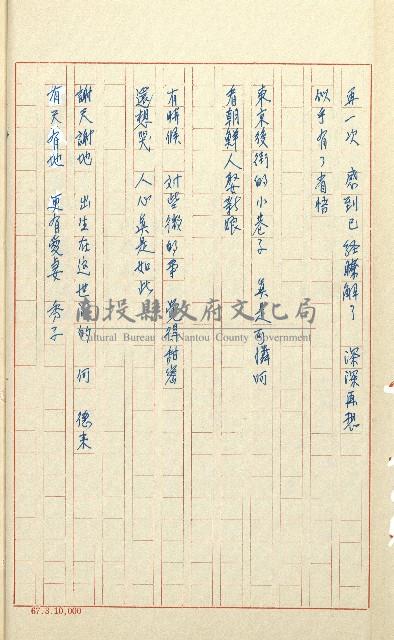 再一次　感到已經瞭解了　深深再想
似乎有了省悟
東京後街的小巷子　真是可憐呵
看朝鮮人娶新娘
有時候　对些微的事　覺得甜戀
還想哭　人心真是如此
謝天謝地　出生在這世間的　何　德来
有天有地　更有愛妻　秀子
南投縣政府文化局
Cultural Bureau of Nantou County Government
67.3.10,000